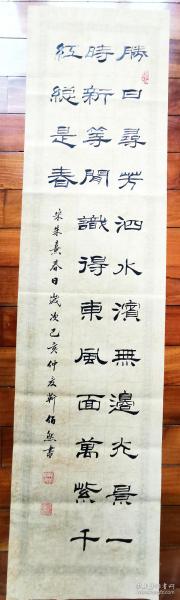 勝日尋芳泗水濱無邊光景一
時新等閒識得東風面萬紫千
紅總是春
宋朱熹春日歲次己亥仲夏靳佰然書